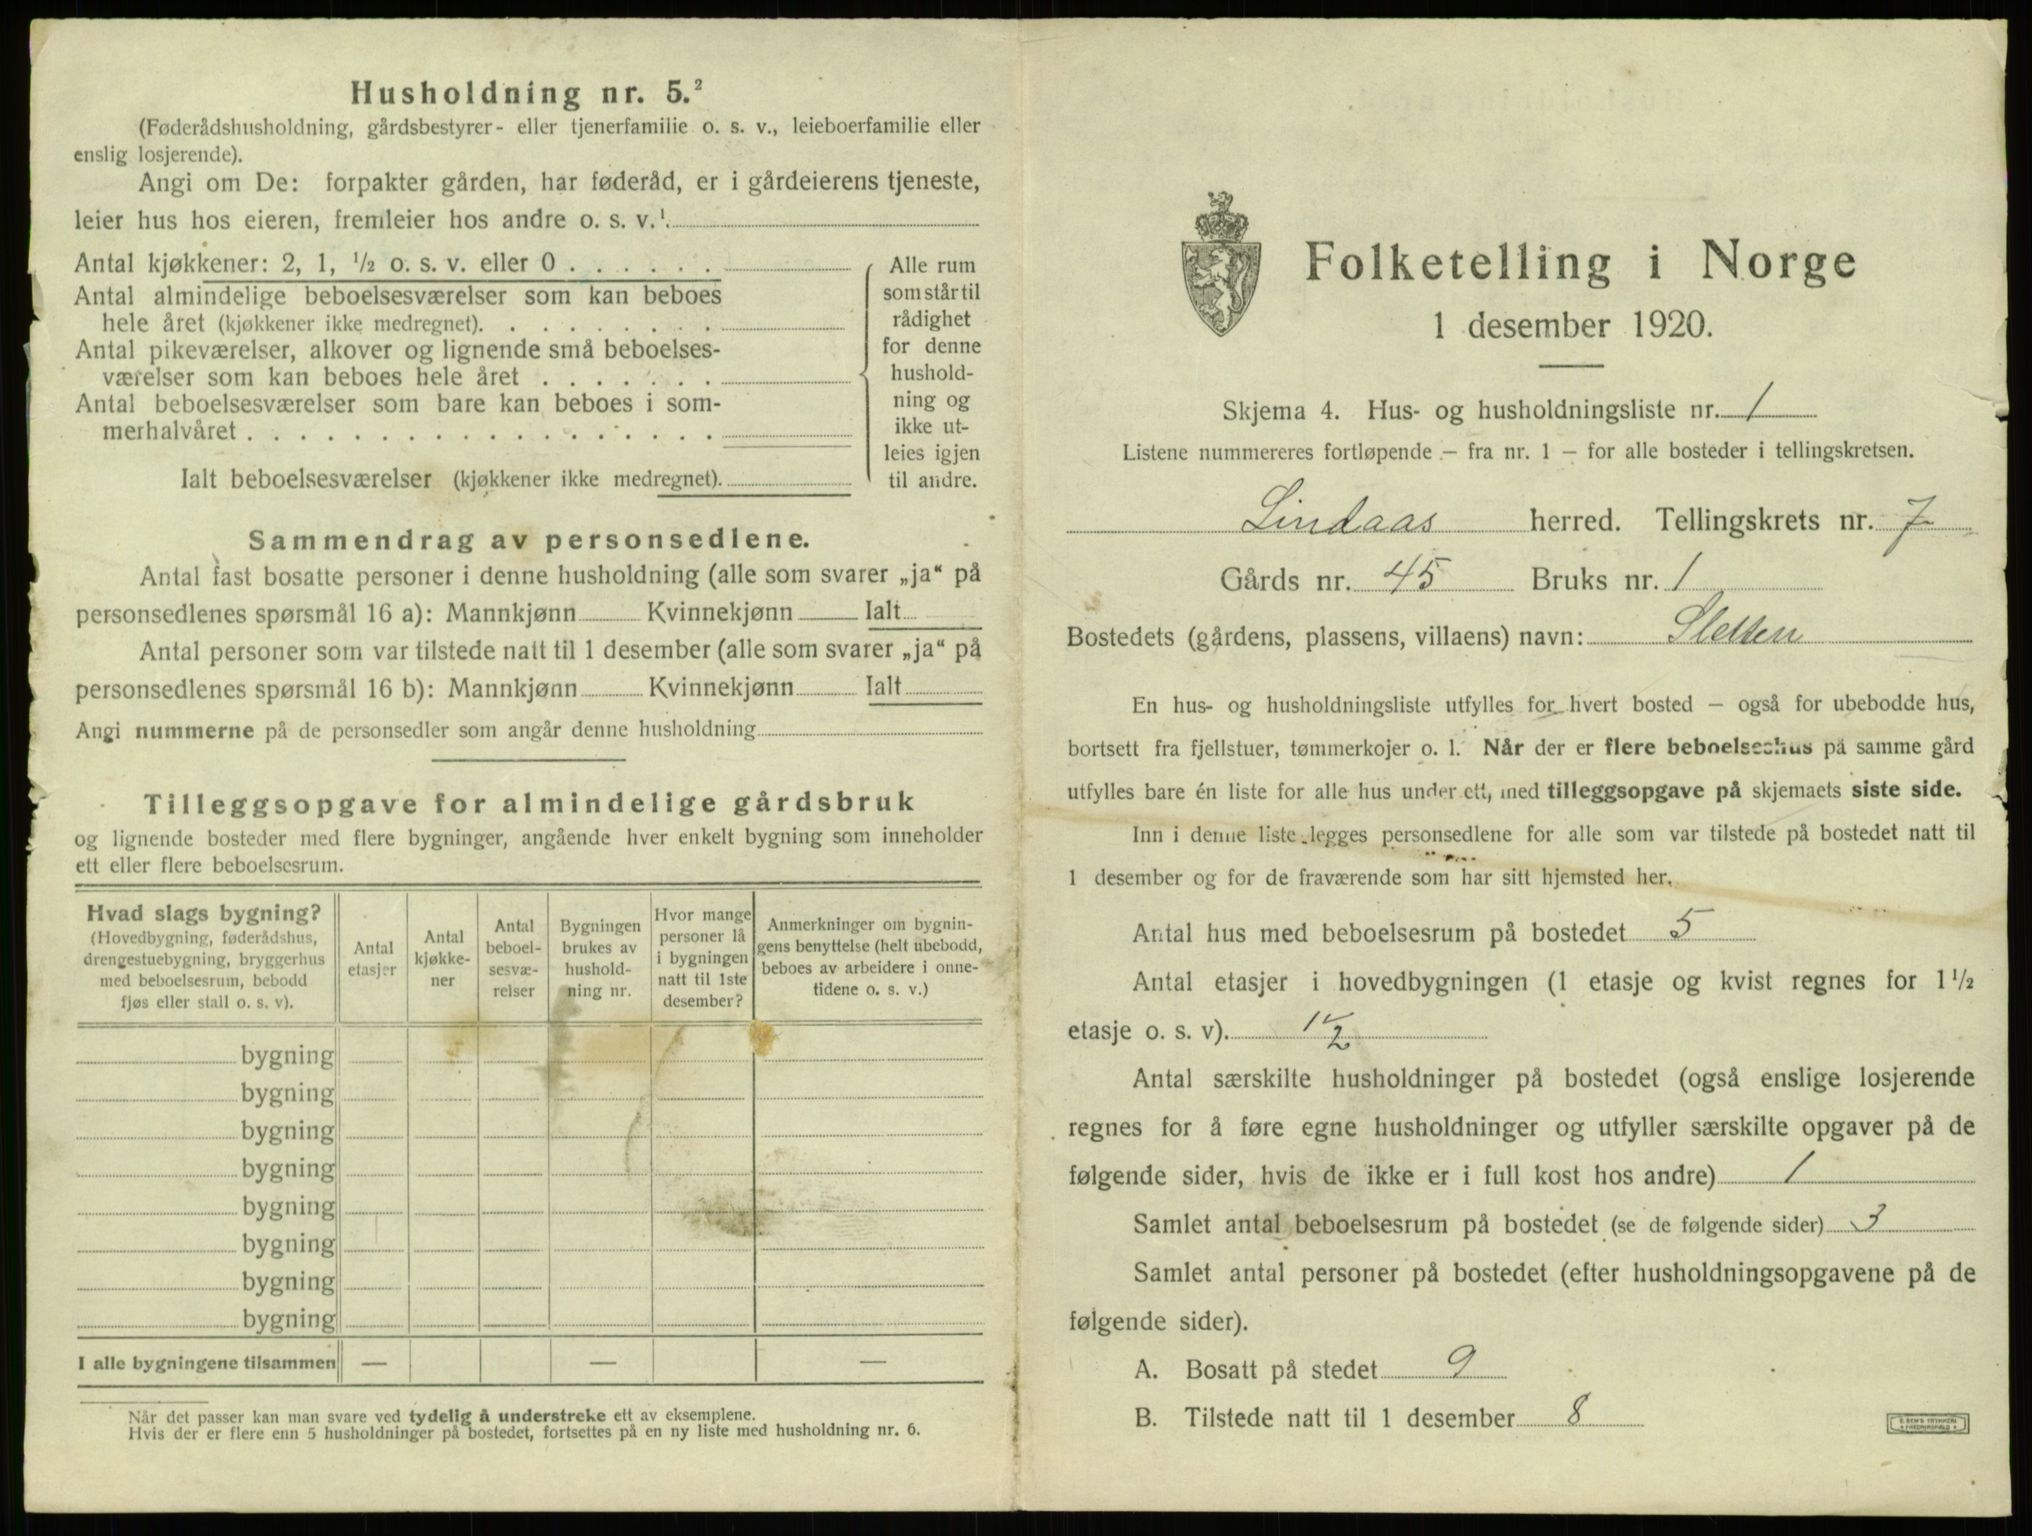 Husholdning nr. 5.²
(Føderådshusholdning, gårdsbestyrer- eller tjenerfamilie o. s. v., leieboerfamilie eller
enslig losjerende).
Angi om De: forpakter gården, har føderåd, er i gårdeierens tjeneste,
leier hus hos eieren, fremleier hos andre o. s. v.¹.
Antal kjøkkener: 2, 1, ½ o. s. v. eller 0 . . . . . .
Antal almindelige beboelsesværelser som kan beboes
hele året (kjøkkener ikke medregnet). . . . . . . . .
Antal pikeværelser, alkover og lignende små beboelses-
værelser som kan beboes hele året . . . . . . .
Antal beboelsesværelser som bare kan beboes i som-
merhalvåret . . . . . . . . . . . . . . . . . .
Ialt beboelsesværelser (kjøkkener ikke medregnet).
Alle rum
som står til
rådighet
for denne
hushold-
ning og
ikke ut-
leies igjen
til andre.
Sammendrag av personsedlene.
Antal fast bosatte personer i denne husholdning (alle som svarer „ja“ på
personsedlenes spørsmål 16 a): Mannkjønn Kvinnekjønn Ialt
Antal personer som var tilstede natt til 1 desember (alle som svarer „ja“ på
personsedlenes spørsmål 16 b): Mannkjønn Kvinnekjønn Ialt
Angi nummerne på de personsedler som angår denne husholdning
Tilleggsopgave for almindelige gårdsbruk
og lignende bosteder med flere bygninger, angående hver enkelt bygning som inneholder
ett eller flere beboelsesrum.
Hvad slags bygning?
(Hovedbygning, føderådshus,
drengestuebygning, bryggerhus
med beboelsesrum, bebodd
fjøs eller stall o. s. v).
Antal
etasjer
Antal
kjøkke-
ner
Antal
beboel-
sesvæ-
relser
Bygningen
brukes av
hushold-
ning nr.
Hvor mange
personer lå
i bygningen
natt til 1ste
desember?
Anmerkninger om bygnin-
gens benyttelse (helt ubebodd,
beboes av arbeidere i onne-
tidene o. s. v.)
bygning
bygning
bygning
bygning
bygning
bygning
bygning
bygning
I alle bygningene tilsammen — — —
Når det passer kan man svare ved tydelig å understreke ett av eksemplene.
Hvis der er flere enn 5 husholdninger på bostedet, fortsettes på en ny liste med husholdning nr. 6.
Folketelling i Norge
1 desember 1920.
Skjema 4. Hus- og husholdningsliste nr. 1
Listene nummereres fortløpende – fra nr. 1 – for alle bosteder i tellingskretsen.
Lindaas herred. Tellingskrets nr. 7
Gårds nr. 45 Bruks nr. 1
Bostedets (gårdens, plassens, villaens) navn: Sletten
En hus- og husholdningsliste utfylles for hvert bosted – også for ubebodde hus,
bortsett fra fjellstuer, tømmerkojer o. l. Når der er flere beboelseshus på samme gård
utfylles bare én liste for alle hus under ett, med tilleggsopgave på skjemaets siste side.
Inn i denne liste legges personsedlene for alle som var tilstede på bostedet natt til
1 desember og for de fraværende som har sitt hjemsted her.
Antal hus med beboelsesrum på bostedet 5
Antal etasjer i hovedbygningen (1 etasje og kvist regnes for 1½
etasje o. s. v). 1½
Antal særskilte husholdninger på bostedet (også enslige losjerende
regnes for å føre egne husholdninger og utfyller særskilte opgaver på de
følgende sider, hvis de ikke er i full kost hos andre) 1
Samlet antal beboelsesrum på bostedet (se de følgende sider) 3
Samlet antal personer på bostedet (efter husholdningsopgavene på de
følgende sider).
A. Bosatt på stedet 9
B. Tilstede natt til 1 desember 8